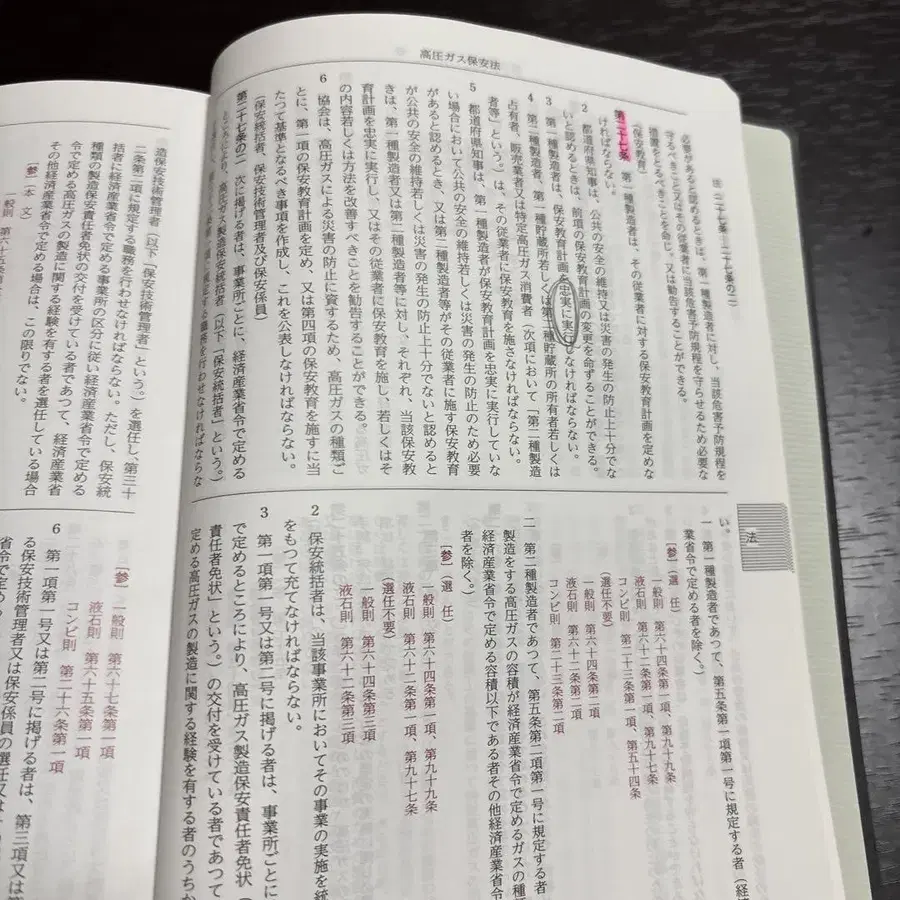 高圧ガス保安法
法(二七条―二七条の二)
必要があると認めるときは、第一種製造者に対し、当該危害予防規程を
守るべきこと又はその従業者に当該危害予防規程を守らせるため必要な
措置をとるべきことを命じ、又は勧告することができる。
(保安教育)
第二十七条 第一種製造者は、その従業者に対する保安教育計画を定めな
ければならない。
2 都道府県知事は、公共の安全の維持又は災害の発生の防止上十分でな
いと認めるときは、前項の保安教育計画の変更を命ずることができる。
3 第一種製造者は、保安教育計画を忠実に実行しなければならない。
4 第二種製造者、第一種貯蔵所若しくは第二種貯蔵所の所有者若しくは
占有者、販売業者又は特定高圧ガス消費者(次項において「第二種製造
者等」という。)は、その従業者に保安教育を施さなければならない。
5 都道府県知事は、第一種製造者が保安教育計画を忠実に実行していな
い場合において公共の安全の維持若しくは災害の発生の防止のため必要
があると認めるとき、又は第二種製造者等がその従業者に施す保安教育
が公共の安全の維持若しくは災害の発生の防止上十分でないと認めると
きは、第一種製造者又は第二種製造者等に対し、それぞれ、当該保安教
育計画を忠実に実行し、又はその従業者に保安教育を施し、若しくはそ
の内容若しくは方法を改善すべきことを勧告することができる。
6 協会は、高圧ガスによる災害の防止に資するため、高圧ガスの種類ご
とに、第一項の保安教育計画を定め、又は第四項の保安教育を施すに当
たつて基準となるべき事項を作成し、これを公表しなければならない。
(保安統括者、保安技術管理者及び保安係員)
第二十七条の二 次に掲げる者は、事業所ごとに、経済産業省令で定める
ところにより、高圧ガス製造保安統括者(以下「保安統括者」という。)
規定する職務を行わせなければならな
い。
一 第一種製造者であつて、第五条第一項第一号に規定する者(経
業省令で定める者を除く。)
〔参〕(選 任)
一般則 第六十四条第一項、第九十九条
液石則 第六十二条第一項、第九十七条
コンビ則 第二十三条第一項、第五十四条
(選任不要)
一般則 第六十四条第二項
液石則 第六十二条第二項
コンビ則 第二十三条第二項
二 第二種製造者であつて、第五条第二項第一号に規定する者
製造をする高圧ガスの容積が経済産業省令で定めるガスの種
経済産業省令で定める容積以下である者その他経済産業省令
者を除く。)
〔参〕(選 任)
一般則 第六十四条第一項、第九十九条
液石則 第六十二条第一項、第九十七条
(選任不要)
一般則 第六十四条第三項
液石則 第六十二条第三項
2 保安統括者は、当該事業所においてその事業の実施を統
をもつて充てなければならない。
3 第一項第一号又は第二号に掲げる者は、事業所ごとに
で定めるところにより、高圧ガス製造保安責任者免状(
責任者免状」という。)の交付を受けている者であつて
定める高圧ガスの製造に関する経験を有する者のうちか
法
造保安技術管理者(以下「保安技術管理者」という。)を選任し、第三十
二条第二項に規定する職務を行わせなければならない。ただし、保安統
括者に経済産業省令で定める事業所の区分に従い経済産業省令で定める
種類の製造保安責任者免状の交付を受けている者であつて、経済産業省
令で定める高圧ガスの製造に関する経験を有する者を選任している場合
その他経済産業省令で定める場合は、この限りでない。
〔参〕(本 文)
一般則 第六十五条
〔参〕 一般則 第六十七条第一項
液石則 第六十五条第一項
コンビ則 第二十六条第一項
6 第一項第一号又は第二号に掲げる者は、第三項又は
る保安技術管理者又は保安係員の選任又は
省令で定め